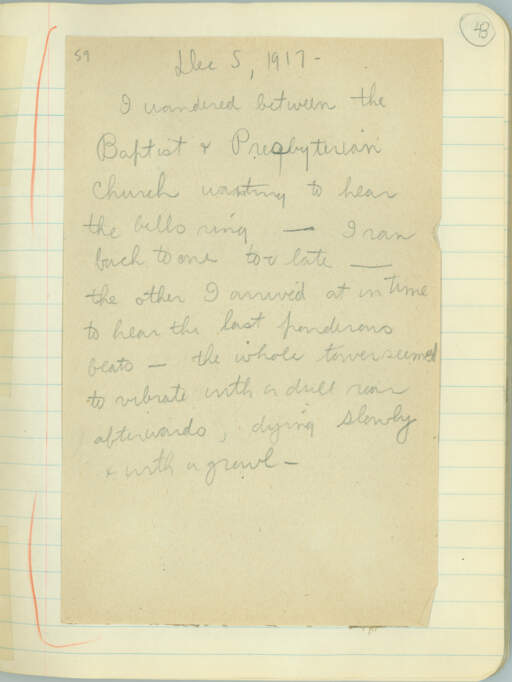 43
59
Dec 5, 1917-
I wandered between the
Baptist + Presbyterian
Church wanting to hear
the bells ring — I ran
back to one too late —
the other I arrived at in time
to hear the last ponderous
beats — the whole tower seemed
to vibrate with a dull roar
afterwards, dying slowly
+ with a growl —